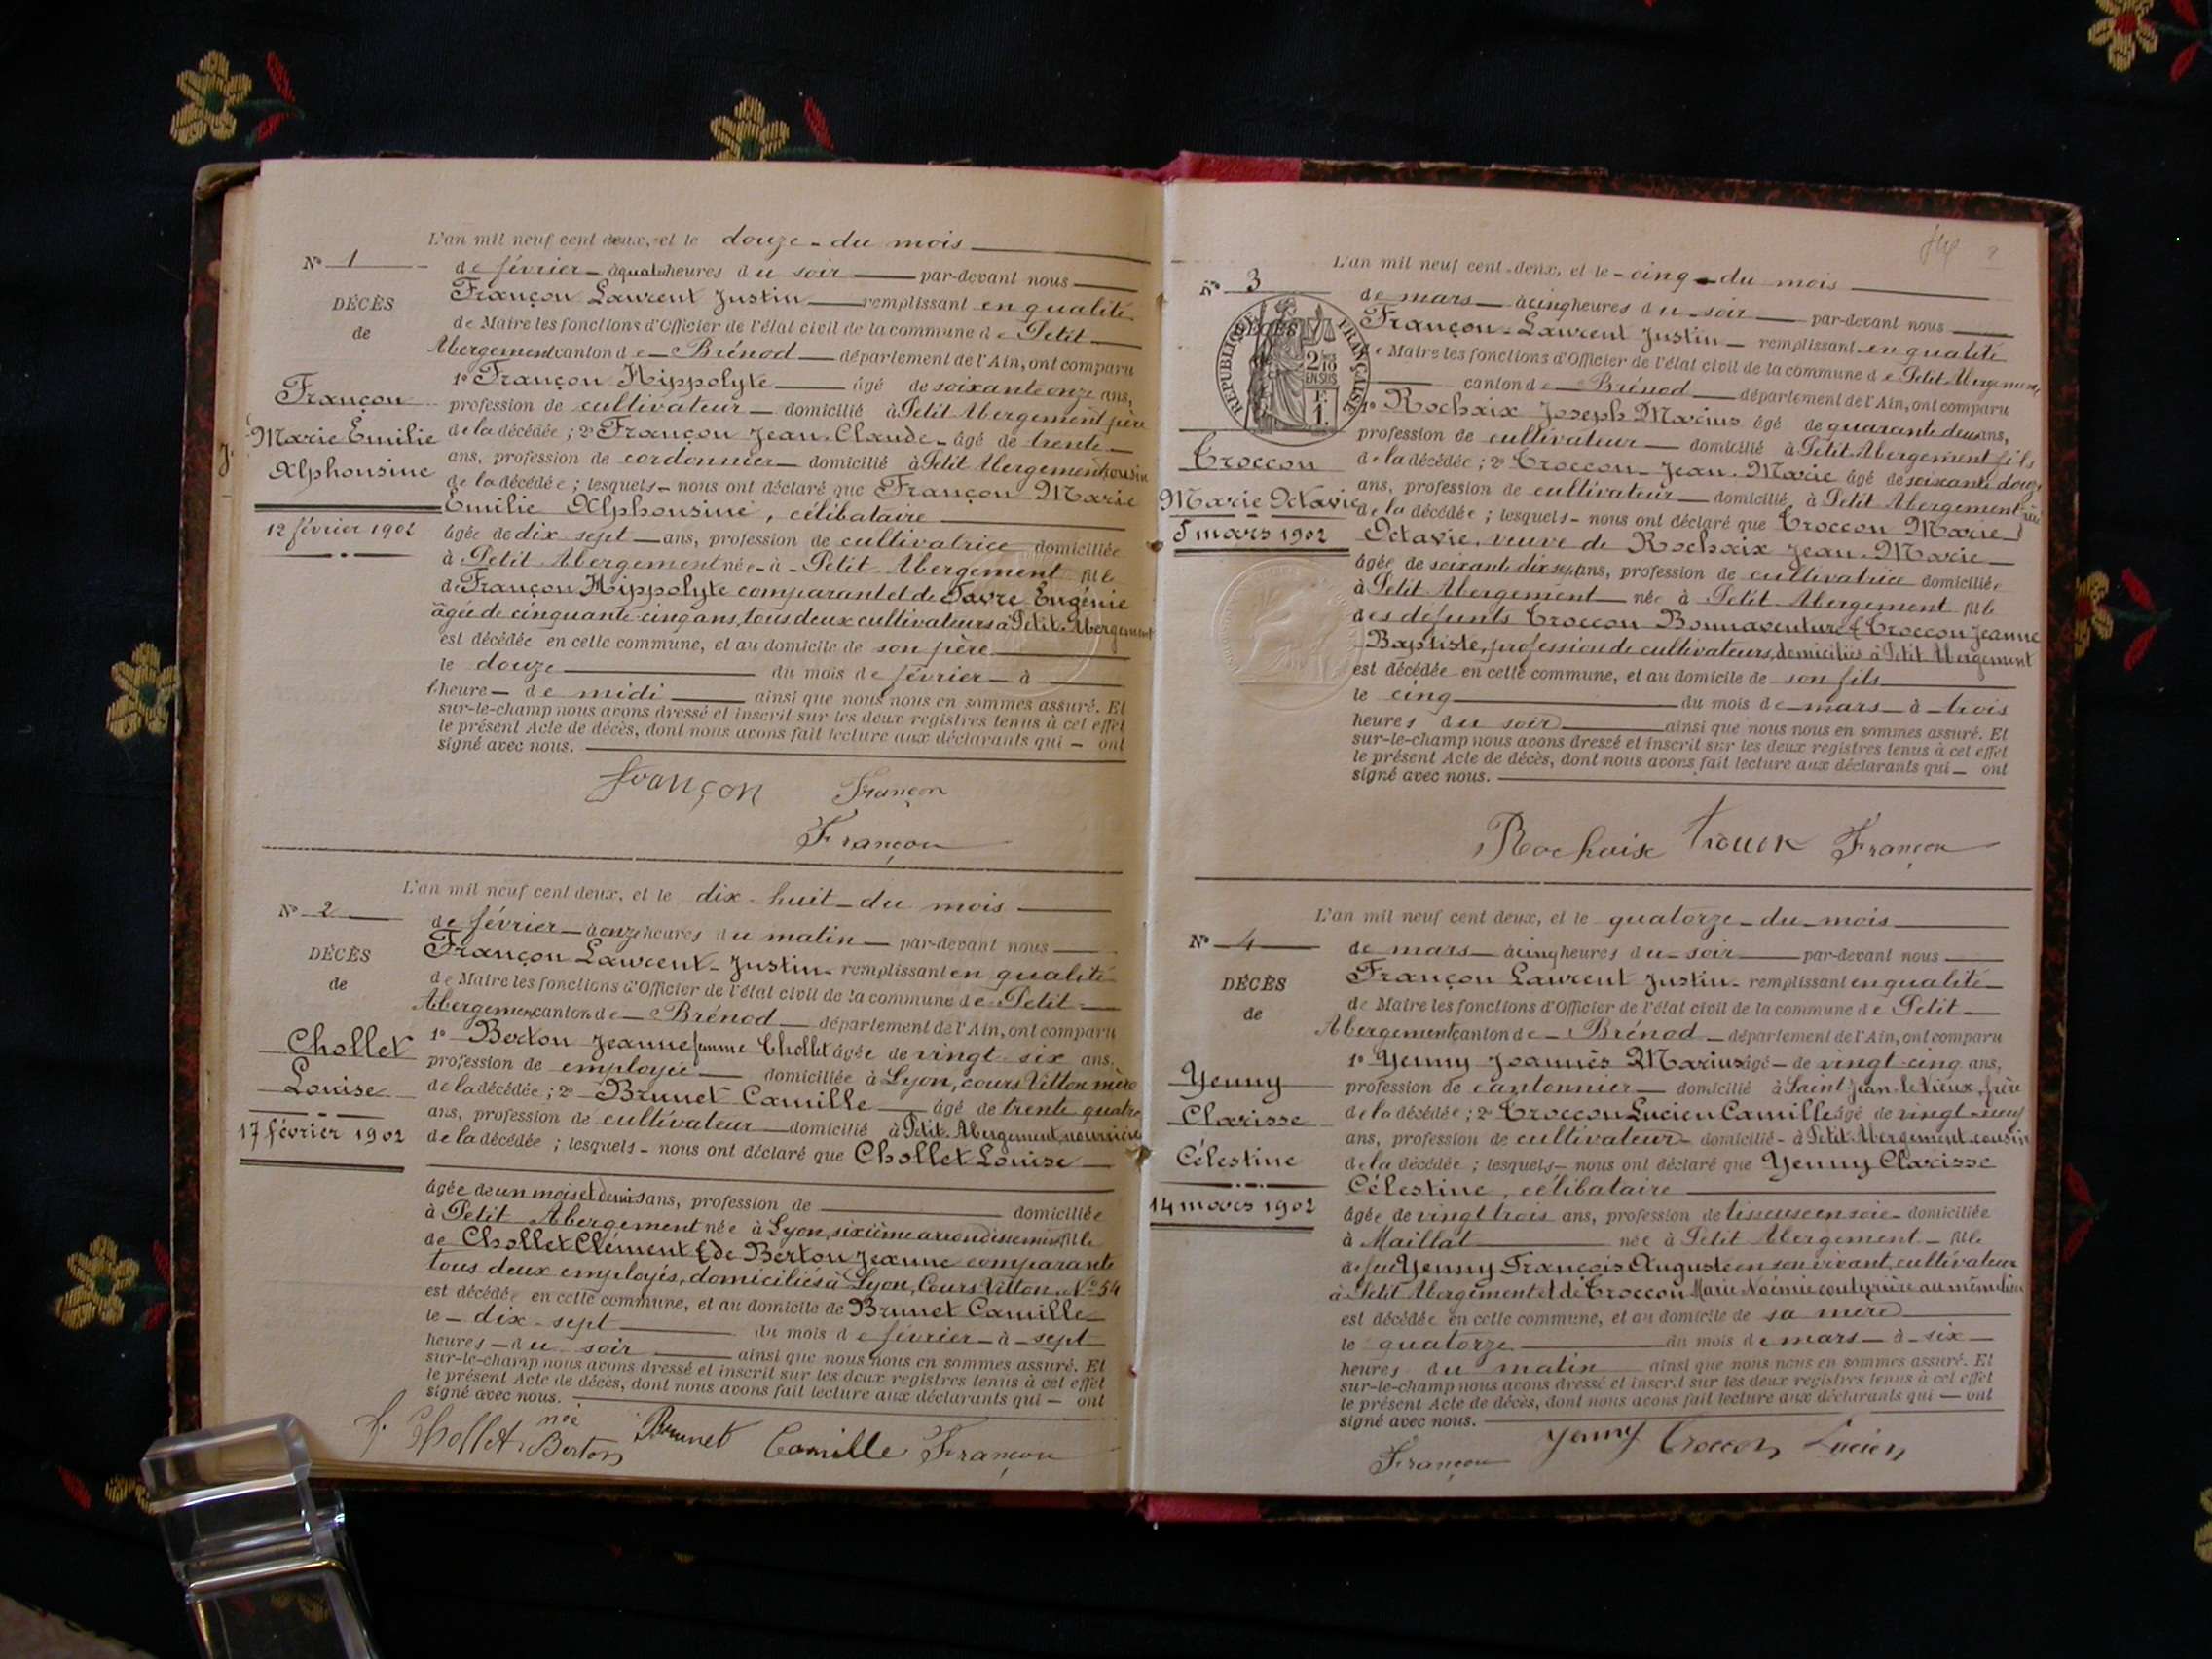 L'an mil neuf cent deux, et le douze du mois
N° 1
de février à quatre heures du soir par-devant nous
Françon Laurent Justin remplissant en qualité
DÉCÈS
de Maire les fonctions d'Officier de l'état civil de la commune de Petit
de
Abergement canton de Brénod département de l'Ain, ont comparu
1° Françon Hippolyte âgé de soixante onze ans,
Françon
profession de cultivateur domicilié à Petit Abergement père
Marie Émilie
de la décédée ; 2° Françon Jean-Claude âgé de trente
Alphonsine
ans, profession de cordonnier domicilié à Petit Abergement cousin
de la décédée ; lesquels nous ont déclaré que Françon Marie
Émilie Alphonsine, célibataire
12 février 1902
âgée de dix sept ans, profession de cultivatrice domiciliée
à Petit Abergement née à Petit Abergement fille
de Françon Hippolyte comparant et de Favre Eugénie
âgée de cinquante-cinq ans, tous deux cultivateurs à Petit Abergement
est décédée en cette commune, et au domicile de son père
le douze du mois de février à
l'heure de midi ainsi que nous nous en sommes assuré. Et
sur-le-champ nous avons dressé et inscrit sur les deux registres tenus à cet effet
le présent Acte de décès, dont nous avons fait lecture aux déclarants qui ont
signé avec nous.
françon Françon
Françon
L'an mil neuf cent deux, et le dix-huit du mois
N° 2
de février à onze heures du matin par-devant nous
Françon Laurent Justin remplissant en qualité
DÉCÈS
de Maire les fonctions d'Officier de l'état civil de la commune de Petit
de
Abergement canton de Brénod département de l'Ain, ont comparu
Chollet
1° Berton Jeanne femme Chollet âgée de vingt-six ans,
profession de employée domiciliée à Lyon, cours Vitton mère
Louise
de la décédée ; 2° Brunet Camille âgé de trente quatre
17 février 1902
ans, profession de cultivateur domicilié à Petit Abergement, nourricier
de la décédée ; lesquels nous ont déclaré que Chollet Louise
âgée de un mois et demi ans, profession de domiciliée
à Petit Abergement née à Lyon, sixième arrondissement fille
de Chollet Clément & de Berton Jeanne comparante
tous deux employés, domiciliés à Lyon, Cours Vitton, N° 54
est décédée en cette commune, et au domicile de Brunet Camille
le dix-sept du mois de février à sept
heures du soir ainsi que nous nous en sommes assuré. Et
sur-le-champ nous avons dressé et inscrit sur les deux registres tenus à cet effet
le présent Acte de décès, dont nous avons fait lecture aux déclarants qui ont
signé avec nous.
J. Chollet née Berton Brunet Camille Françon
L'an mil neuf cent deux, et le cinq du mois
N° 3
de mars à cinq heures du soir par-devant nous
RÉPUBLIQUE FRANÇAISE
2/10 EN SUS
F. 1.
Françon Laurent Justin remplissant en qualité
de Maire les fonctions d'Officier de l'état civil de la commune de Petit Abergement
canton de Brénod département de l'Ain, ont comparu
1° Rochaix Joseph Marius âgé de quarante deux ans,
profession de cultivateur domicilié à Petit Abergement fils
Troccon
de la décédée ; 2° Troccon Jean-Marie âgé de soixante douze
Marie Octavie
ans, profession de cultivateur domicilié à Petit Abergement
de la décédée ; lesquels nous ont déclaré que Troccon Marie
5 mars 1902
Octavie, veuve de Rochaix Jean-Marie
âgée de soixante dix sept ans, profession de cultivatrice domiciliée
à Petit Abergement née à Petit Abergement fille
des défunts Troccon Bonnaventure & Troccon Jeanne
Baptiste, profession de cultivateurs, domiciliés à Petit Abergement
est décédée en cette commune, et au domicile de son fils
le cinq du mois de mars à trois
heures du soir ainsi que nous nous en sommes assuré. Et
sur-le-champ nous avons dressé et inscrit sur les deux registres tenus à cet effet
le présent Acte de décès, dont nous avons fait lecture aux déclarants qui ont
signé avec nous.
Rochaix Françon
L'an mil neuf cent deux, et le quatorze du mois
N° 4
de mars à cinq heures du soir par-devant nous
DÉCÈS
Françon Laurent Justin remplissant en qualité
de
de Maire les fonctions d'Officier de l'état civil de la commune de Petit
Abergement canton de Brénod département de l'Ain, ont comparu
Yenny
1° Yenny Joannès Marius âgé de vingt-cinq ans,
profession de cantonnier domicilié à Saint-Jean-le-Vieux, frère
Clarisse
de la décédée ; 2° Troccon Lucien Camille âgé de vingt-neuf
ans, profession de cultivateur domicilié à Petit Abergement cousin
Célestine
de la décédée ; lesquels nous ont déclaré que Yenny Clarisse
Célestine, célibataire
14 mars 1902
âgée de vingt trois ans, profession de tisseuse en soie domiciliée
à Maillat née à Petit Abergement fille
de feu Yenny François Auguste en son vivant, cultivateur
à Petit Abergement et de Troccon Marie Noémie couturière au même lieu
est décédée en cette commune, et au domicile de sa mère
le quatorze du mois de mars à six
heures du matin ainsi que nous nous en sommes assuré. Et
sur-le-champ nous avons dressé et inscrit sur les deux registres tenus à cet effet
le présent Acte de décès, dont nous avons fait lecture aux déclarants qui ont
signé avec nous.
Françon Yenny Troccon Lucien